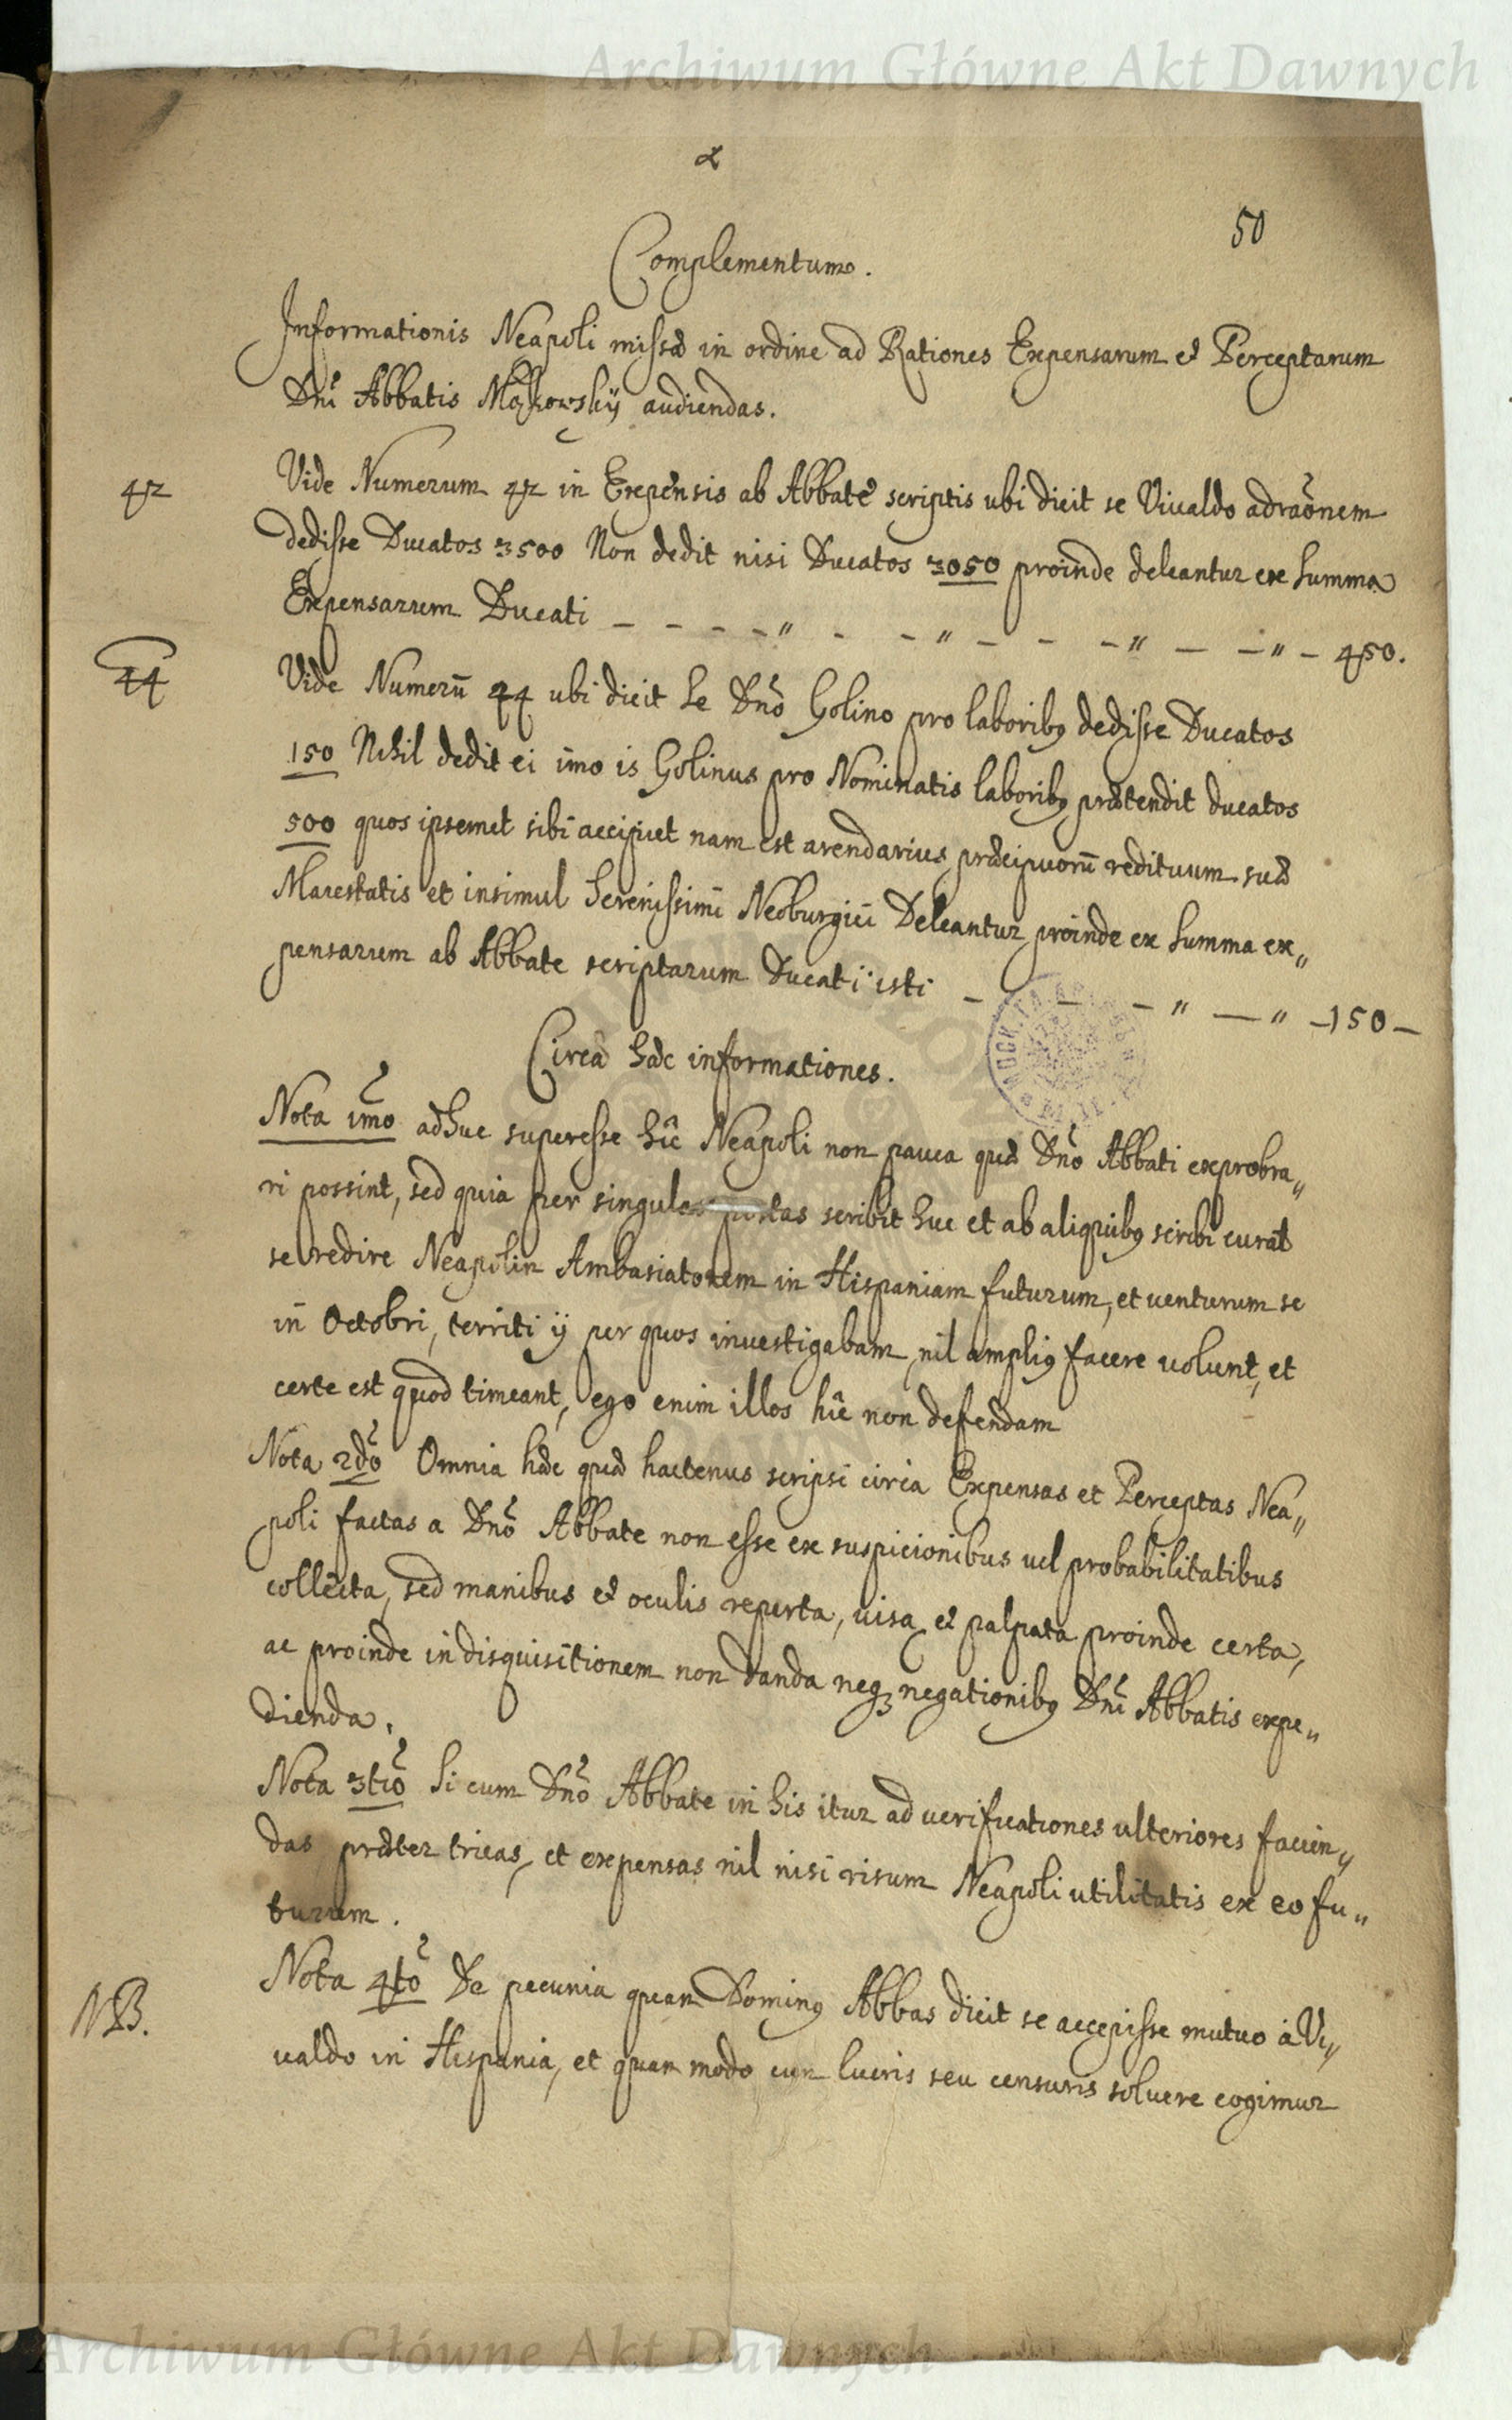 Archiwum Główne Akt Dawnych
α
50
Complementum.
Informationis Neapoli missæ in ordine ad Rationes Expensarum et Perceptarum
Dnī Abbatis Mąkowskij audiendas.
42
Vide Numerum 42 in Expensis ab Abbate scriptis ubi dicit se Vivaldo adraōnem
dedisse Ducatos 3500 Non dedit nisi Ducatos 3050 proinde deleantur ex summa
Expensarum Ducati — - - - -" - - " - - - " — - " - 450.
44
Vide Numerū 44 ubi dicit se Dnō Golino pro laboribq dedisse Ducatos
150 Nihil dedit ei imo is Golinus pro Nominatis laboribq prætendit ducatos
500 quos ipsemet sibi accipiet nam est arendarius præcipuorū redituum suæ
Maiestatis et insimul Serenissimi Neoburgici Deleantur proinde ex summa ex„
pensarum ab Abbate scriptarum Ducati isti - — - " — " - 150 —
Circa hæc informationes.
Nota 1mō adhuc superesse hîc Neapoli non pauca quæ Dnō Abbati exprobra„
ri possint, sed quia per singulas postas scribit huc et ab aliquibq scribi curat
se redire Neapolim Ambasiatorem in Hispaniam futurum, et venturum se
in Octobri, territi ij per quos investigabam, nil ampliq facere volunt, et
certe est quod timeant, ego enim illos hîc non defendam
Nota 2dō Omnia hæc quæ hactenus scripsi circa Expensas et Perceptas Nea„
poli factas a Dnō Abbate non esse ex suspicionibus vel probabilitatibus
collecta, sed manibus et oculis reperta, visa et palpata proinde certa,
ac proinde in disquisitionem non danda neq; negationibq Dnī Abbatis expe„
dienda.
Nota 3tiō Si cum Dnō Abbate in his itur ad verificationes ulteriores facien„
das præter tricas, et expensas nil nisi risum Neapoli utilitatis ex eo fu„
turum.
NB.
Nota 4tō De pecunia quam Dominq Abbas dicit se accepisse mutuo à Vi„
valdo in Hispania, et quam modo cum lucris seu censuris solvere cogimur
Archiwum Główne Akt Dawnych